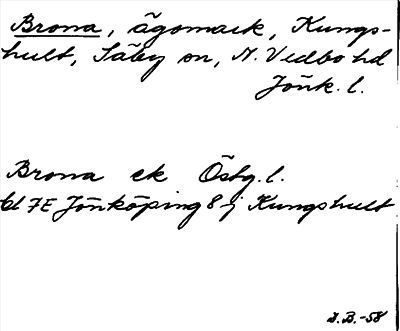 Brona, ägomark, Kungs-
hult, Säby sn, N. Vedbo hd
Jönk. l.
Brona ek Östg. l.
bl 7E Jönköping 8 j Kungshult
B.-58